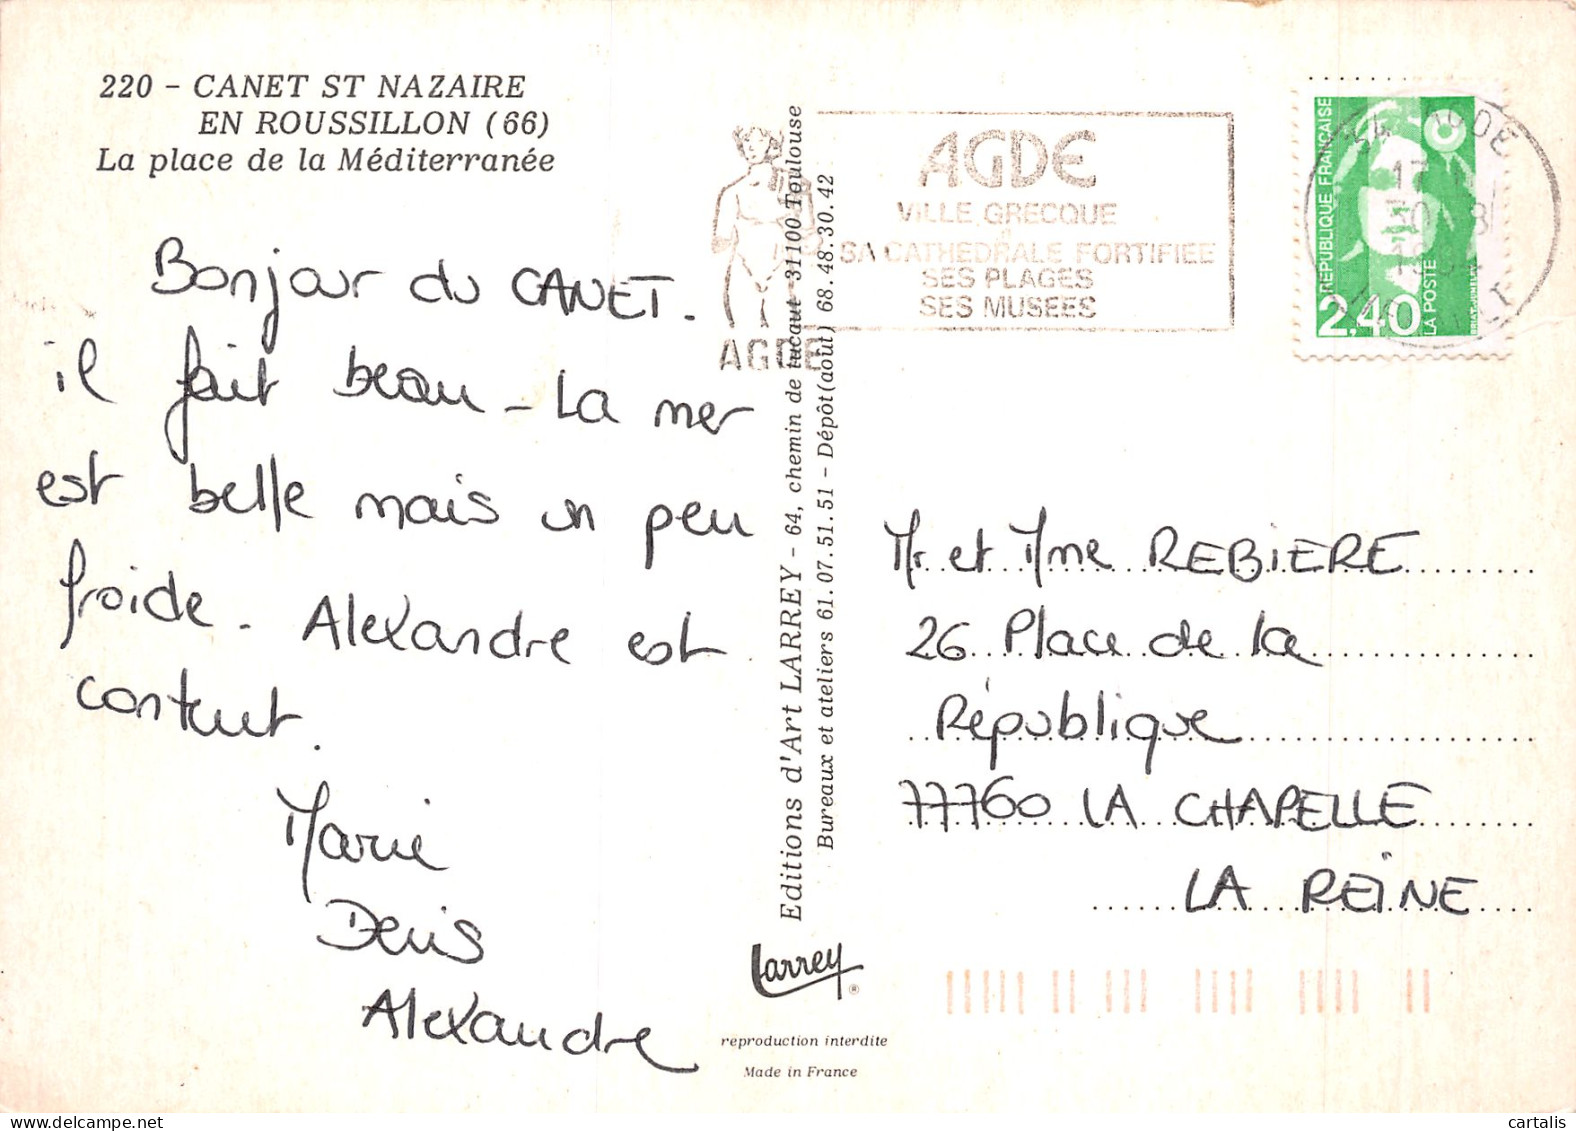 220 - CANET ST NAZAIRE
EN ROUSSILLON (66)
La place de la Méditerranée
Bonjour du CANET.
il fait beau - La mer
est belle mais un peu
froide. Alexandre est
content.
Marie
Denis
Alexandre
Editions d'Art LARREY - 64, chemin de tucaut 31100 Toulouse
Bureaux et ateliers 61.07.51.51 - Dépôt (août) 68.48.30.42
Larrey ®
reproduction interdite
Made in France
AGDE
AGDE
VILLE GRECQUE
SA CATHEDRALE FORTIFIEE
SES PLAGES
SES MUSEES
REPUBLIQUE FRANÇAISE
2,40
LA POSTE
34 AGDE
17
30 8
HERAULT
Mr et Mme REBIERE
26 Place de la
République
77760 LA CHAPELLE
LA REINE
cartalis